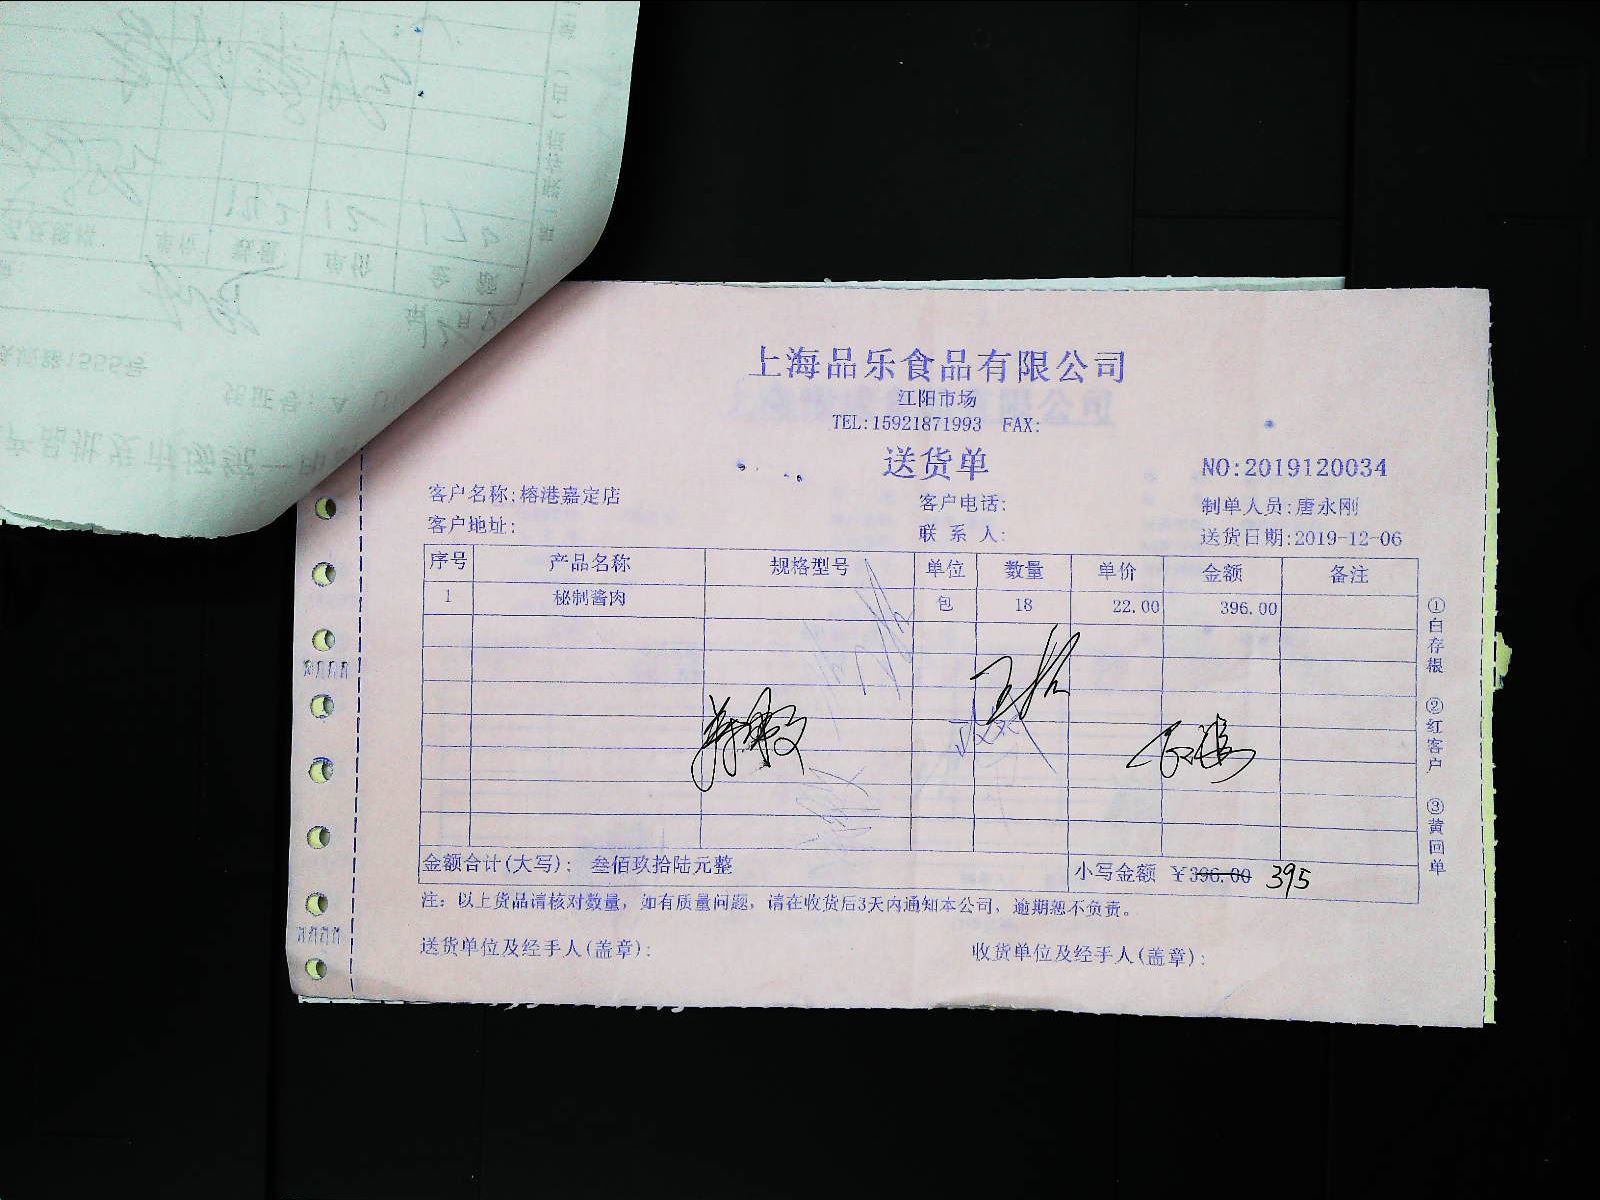 上海品乐食品有限公司
江阳市场
TEL:15921871993 FAX:
送货单
NO:2019120034
客户名称:榕港嘉定店 客户电话: 制单人员:唐永刚
客户地址: 联系人: 送货日期:2019-12-06
序号 产品名称 规格型号 单位 数量 单价 金额 备注
1 秘制酱肉 包 18 22.00 396.00
金额合计(大写): 叁佰玖拾陆元整 小写金额 ¥396.00 395
注: 以上货品请核对数量, 如有质量问题, 请在收货后3天内通知本公司, 逾期恕不负责。
送货单位及经手人(盖章): 收货单位及经手人(盖章):
①白存根 ②红客户 ③黄回单